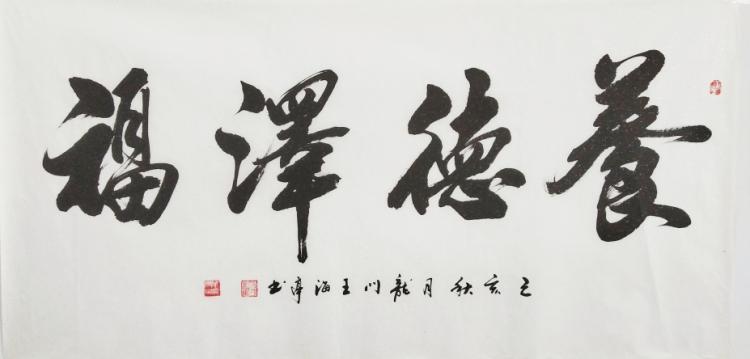 養德澤福
己亥秋月龍川王海亭書